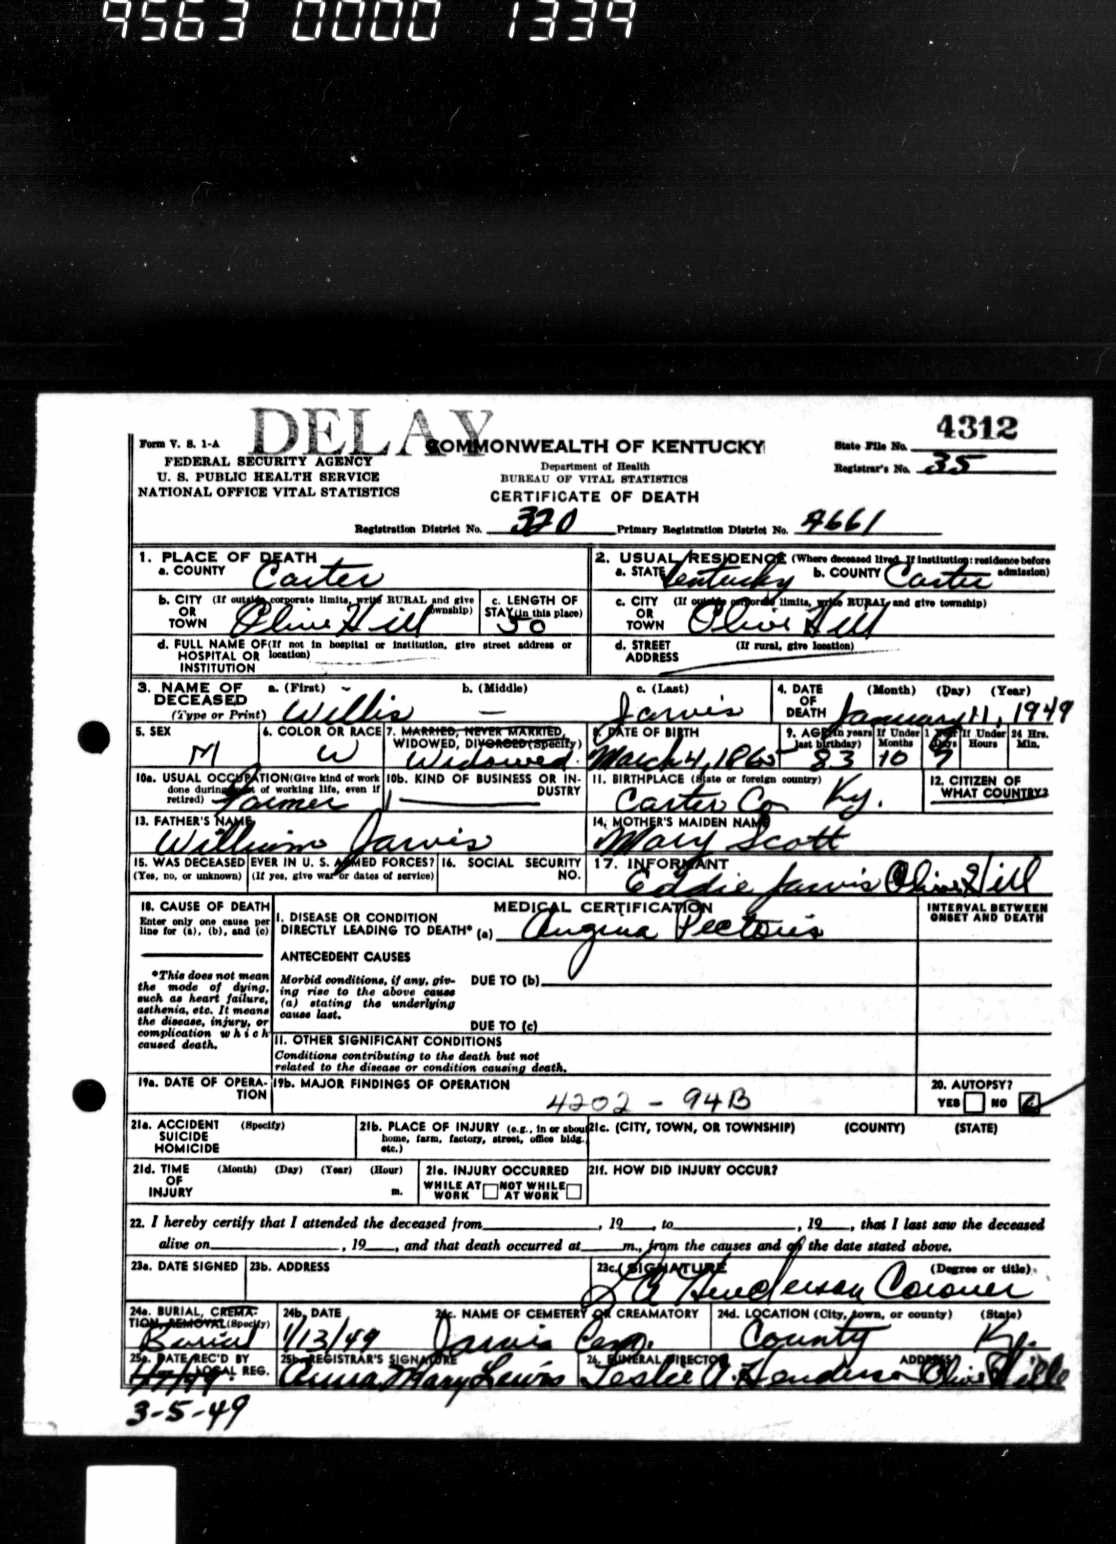 9563 0000 1339
DELAY
4312
Form V. S. 1-A
COMMONWEALTH OF KENTUCKY
State File No.
FEDERAL SECURITY AGENCY
Department of Health
Registrar's No. 35
U. S. PUBLIC HEALTH SERVICE
BUREAU OF VITAL STATISTICS
NATIONAL OFFICE VITAL STATISTICS
CERTIFICATE OF DEATH
Registration District No. 320 Primary Registration District No. 4661
1. PLACE OF DEATH
a. COUNTY Carter
2. USUAL RESIDENCE (Where deceased lived. If institution: residence before admission)
a. STATE Kentucky b. COUNTY Carter
b. CITY OR TOWN (If outside corporate limits, write RURAL and give township) Olive Hill
c. LENGTH OF STAY (in this place) 50
c. CITY OR TOWN (If outside corporate limits, write RURAL and give township) Olive Hill
d. FULL NAME OF HOSPITAL OR INSTITUTION (If not in hospital or institution, give street address or location)
d. STREET ADDRESS (If rural, give location)
3. NAME OF DECEASED (Type or Print) a. (First) Willis b. (Middle) — c. (Last) Jarvis
4. DATE OF DEATH (Month) (Day) (Year) January 11, 1949
5. SEX M
6. COLOR OR RACE W
7. MARRIED, NEVER MARRIED, WIDOWED, DIVORCED (Specify) Widowed.
8. DATE OF BIRTH March 4, 1865
9. AGE (in years last birthday) 83 If Under 1 Year Months 10 Days 7 If Under 24 Hrs. Hours Min.
10a. USUAL OCCUPATION (Give kind of work done during most of working life, even if retired) Farmer
10b. KIND OF BUSINESS OR INDUSTRY
11. BIRTHPLACE (State or foreign country) Carter Co Ky.
12. CITIZEN OF WHAT COUNTRY?
13. FATHER'S NAME William Jarvis
14. MOTHER'S MAIDEN NAME Mary Scott
15. WAS DECEASED EVER IN U. S. ARMED FORCES? (Yes, no, or unknown) (If yes, give war or dates of service)
16. SOCIAL SECURITY NO.
17. INFORMANT Eddie Jarvis Olive Hill
18. CAUSE OF DEATH
Enter only one cause per line for (a), (b), and (c)
MEDICAL CERTIFICATION
INTERVAL BETWEEN ONSET AND DEATH
I. DISEASE OR CONDITION DIRECTLY LEADING TO DEATH* (a) Angina Pectoris
*This does not mean the mode of dying, such as heart failure, asthenia, etc. It means the disease, injury, or complication which caused death.
ANTECEDENT CAUSES
Morbid conditions, if any, giving rise to the above cause (a) stating the underlying cause last.
DUE TO (b)
DUE TO (c)
II. OTHER SIGNIFICANT CONDITIONS
Conditions contributing to the death but not related to the disease or condition causing death.
19a. DATE OF OPERATION
19b. MAJOR FINDINGS OF OPERATION
4202 - 94B
20. AUTOPSY?
YES NO
21a. ACCIDENT SUICIDE HOMICIDE (Specify)
21b. PLACE OF INJURY (e.g., in or about home, farm, factory, street, office bldg. etc.)
21c. (CITY, TOWN, OR TOWNSHIP) (COUNTY) (STATE)
21d. TIME OF INJURY (Month) (Day) (Year) (Hour) m.
21e. INJURY OCCURRED WHILE AT WORK NOT WHILE AT WORK
21f. HOW DID INJURY OCCUR?
22. I hereby certify that I attended the deceased from , 19 , to , 19 , that I last saw the deceased
alive on , 19 , and that death occurred at m., from the causes and of the date stated above.
23a. DATE SIGNED
23b. ADDRESS
23c. SIGNATURE (Degree or title)
L A Henderson Coroner
24a. BURIAL, CREMATION, REMOVAL (Specify) Burial
24b. DATE 1/13/49
24c. NAME OF CEMETERY OR CREAMATORY Jarvis Cem.
24d. LOCATION (City, town, or county) (State) County Ky.
25a. DATE REC'D BY LOCAL REG.
25b. REGISTRAR'S SIGNATURE Anna Mary Lewis
26. FUNERAL DIRECTOR ADDRESS Leslie A. Henderson Olive Hill
3-5-49